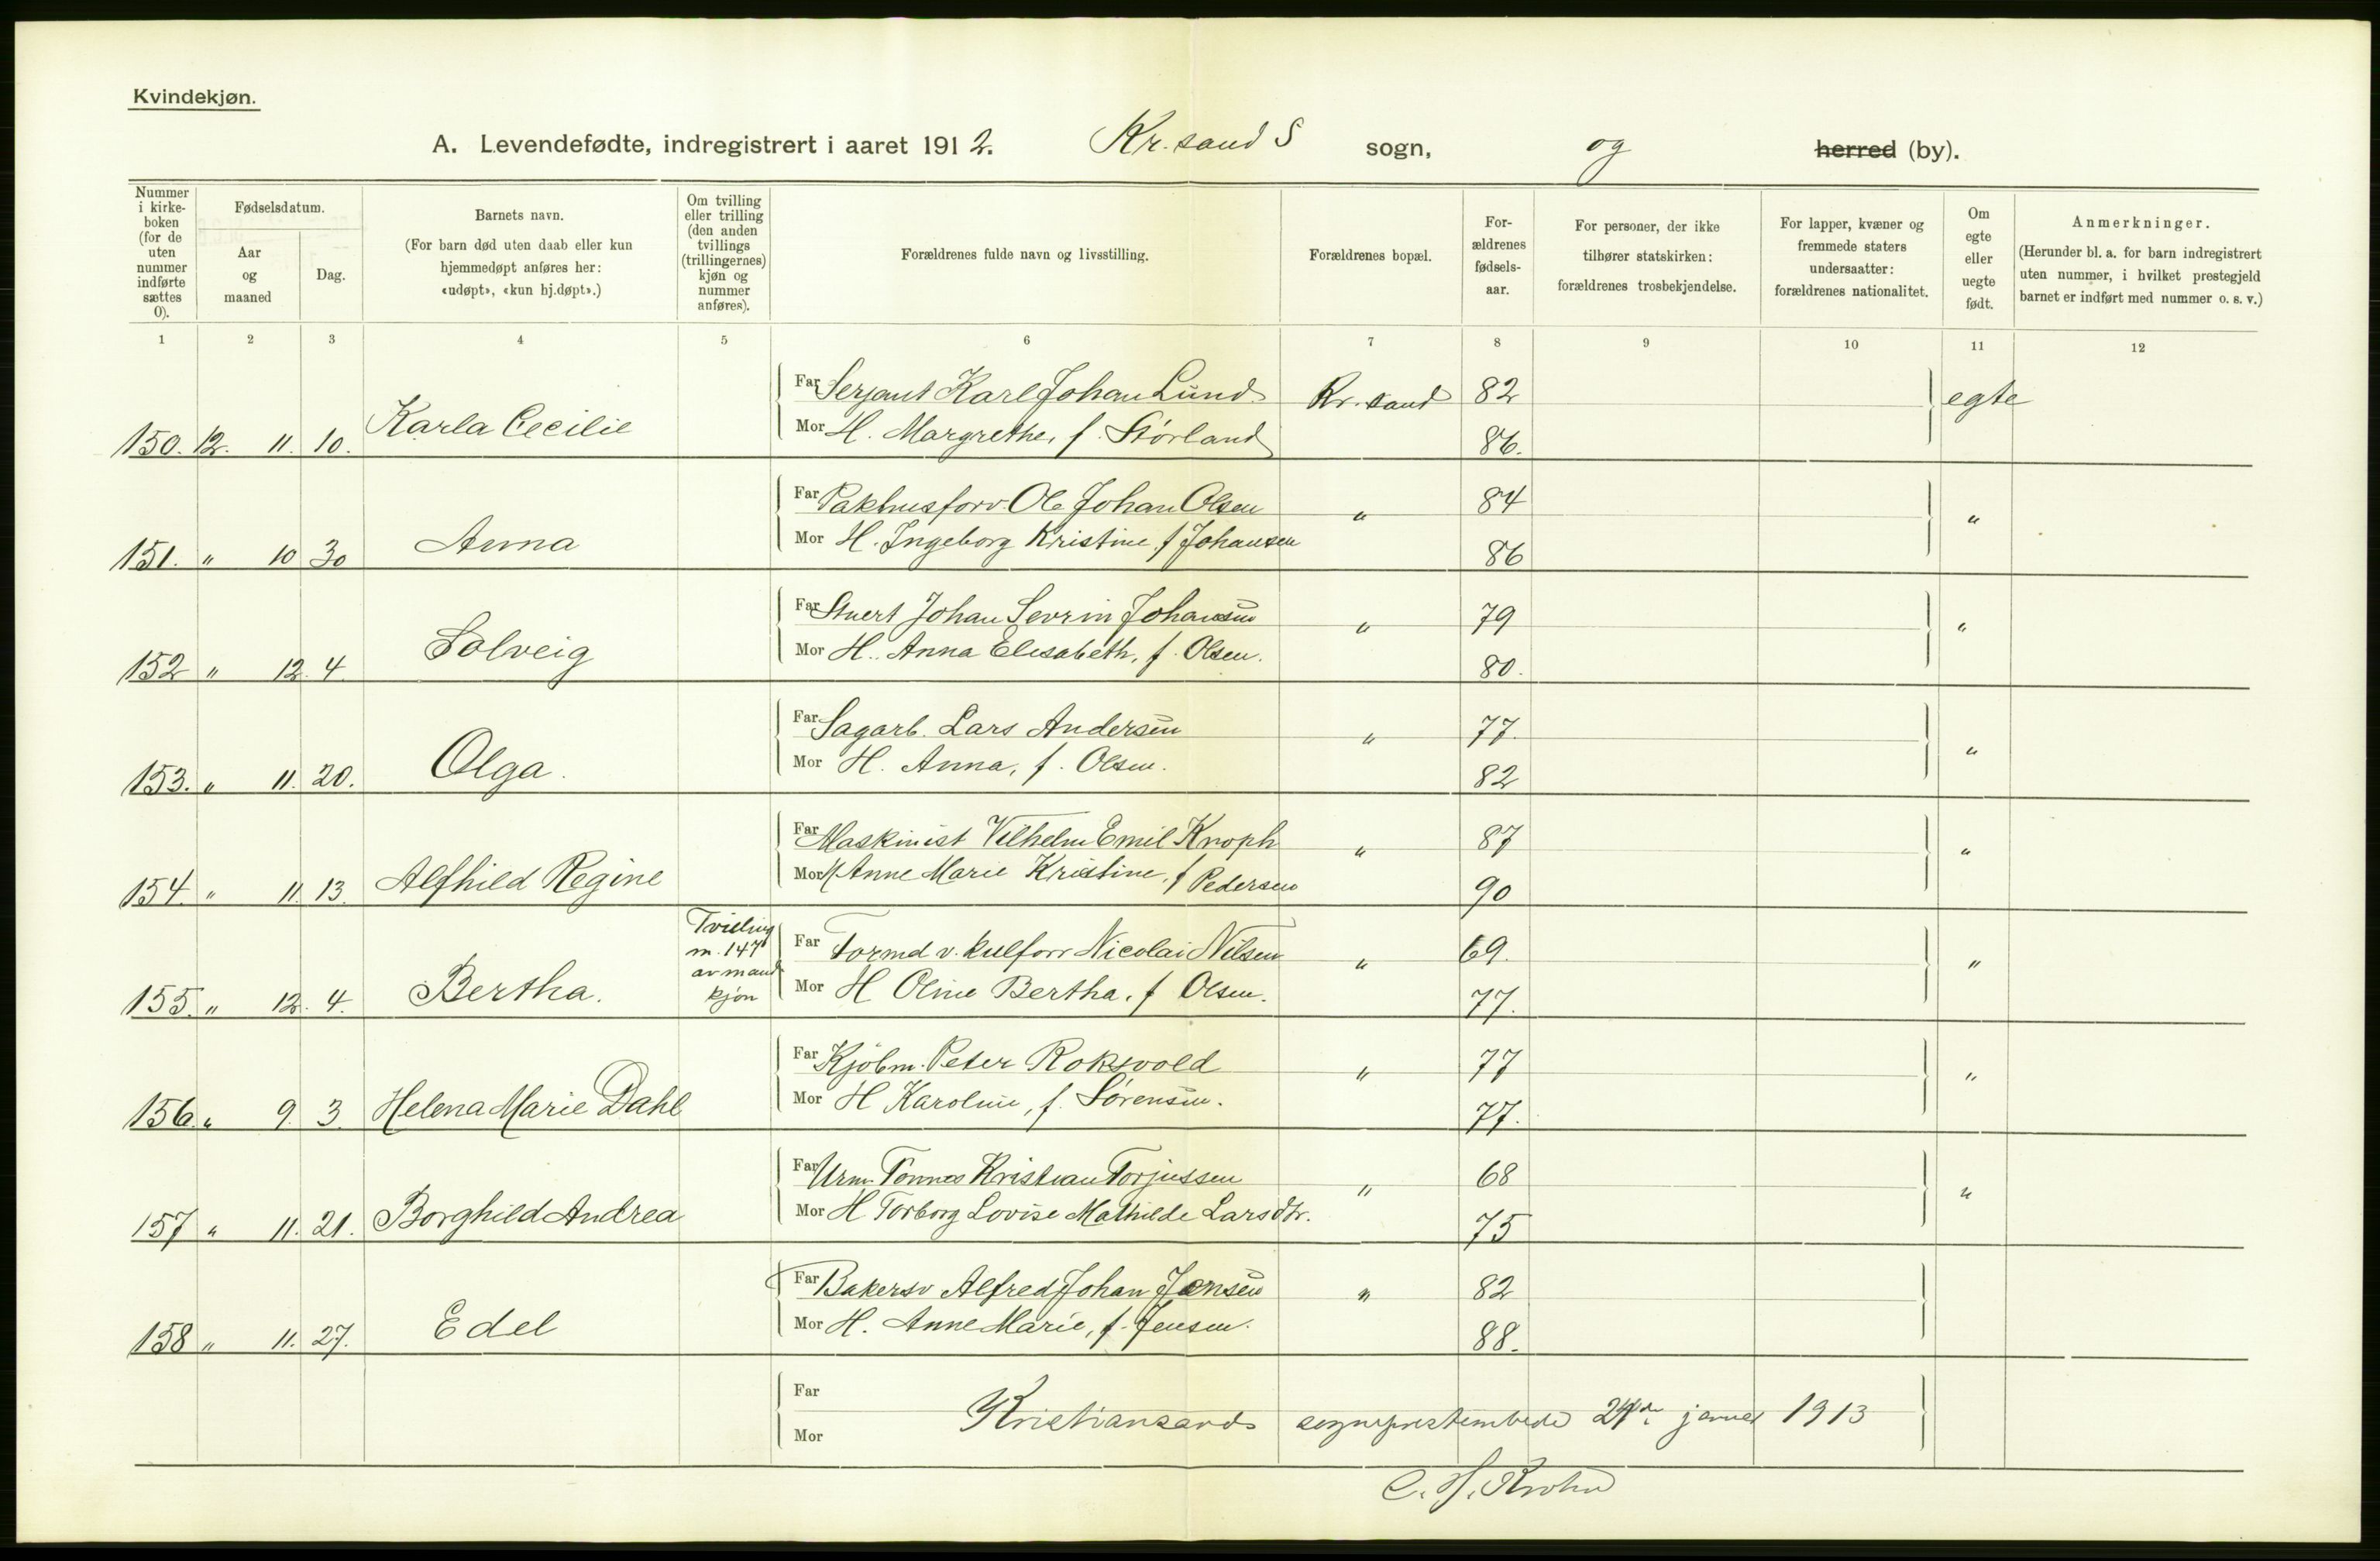 Kvindekjøn.
A. Levendefødte, indregistrert i aaret 1912. Kr.sand S sogn, og herred (by).
Nummer i kirkeboken (for de uten nummer indførte sættes 0).
Fødselsdatum.
Aar og maaned
Dag.
Barnets navn.
(For barn død uten daab eller kun hjemmedøpt anføres her: «udøpt», «kun hj.døpt».)
Om tvilling eller trilling (den anden tvillings (trillingernes) kjøn og nummer anføres).
Forældrenes fulde navn og livsstilling.
Forældrenes bopæl.
Forældrenes fødselsaar.
For personer, der ikke tilhører statskirken: forældrenes trosbekjendelse.
For lapper, kvæner og fremmede staters undersaatter: forældrenes nationalitet.
Om egte eller uegte født.
Anmerkninger.
(Herunder bl. a. for barn indregistrert uten nummer, i hvilket prestegjeld barnet er indført med nummer o. s. v.)
1 2 3 4 5 6 7 8 9 10 11 12
Far Serjant Karl Johan Lund Kr.sand 82 egte
150. 12. 11. 10. Karla Cecilie Mor H. Margrethe, f. Størland 86.
Far Pakhusforv. Ole Johan Olsen " 84 "
151. " 10 30 Anna Mor H. Ingeborg Kristine, f Johansen 86
Far Stuert Johan Sevrin Johansen " 79 "
152 " 12. 4. Solveig Mor H. Anna Elisabeth, f. Olsen. 80.
Far Sagarb. Lars Andersen " 77. "
153. " 11. 20. Olga. Mor H. Anna, f. Olsen. 82
Far Maskinist Vilhelm Emil Knoph " 87 "
154. " 11. 13. Alfhild Regine Mor H Anne Marie Kristine, f Pedersen 90
Tvilling m. 147 av mand kjøn
Far Formd v. kulforr Nicolai Nilsen " 69. "
155. " 12. 4. Bertha. Mor H Oline Bertha, f Olsen. 77.
Far Kjøbm. Peter Roksvold " 77 "
156. " 9. 3. Helena Marie Dahl Mor H Karoline, f. Sørensen. 77.
Far Urm. Tønnes Kristian Torjussen " 68 "
157 " 11. 21. Borghild Andrea Mor H Torborg Lovise Mathilde Larsdtr. 75
Far Bakersv Alfred Johan Jensen " 82
158 " 11. 27. Edel Mor H. Anne Marie, f. Jensen. 88.
Far
Kristiansands sogneprestembede 24de januar 1913
Mor
C. H. Krohn